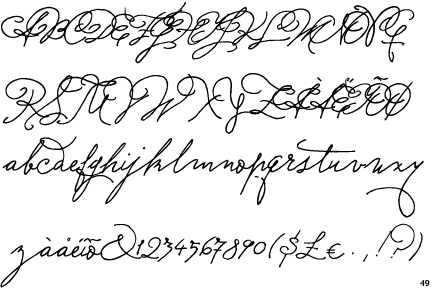 ABCDEFGHIJKLMNOPQ
RSTUVWXYZÀÅÉÎÕØ
abcdefghijklmnopqrstuvwxy
zàåéîõø&1234567890($£€.,!?)
49